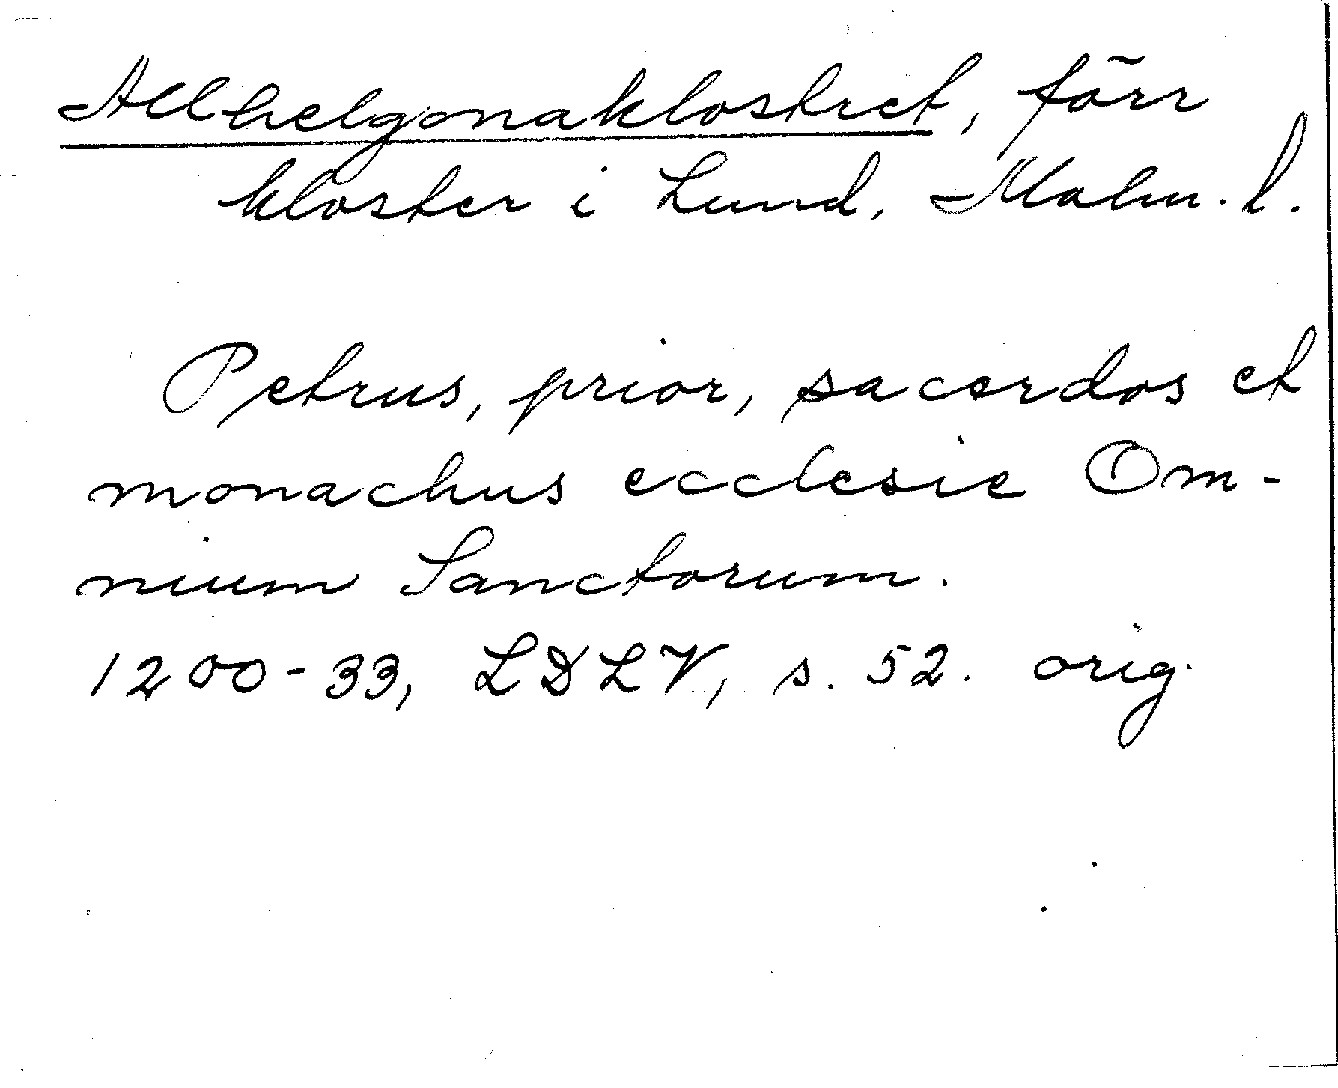 Allhelgonaklostret, förr
kloster i Lund, Malm. l.
Petrus, prior, sacerdos et
monachus ecclesie Om-
nium Sanctorum.
1200-33, LDLV, s. 52. orig.